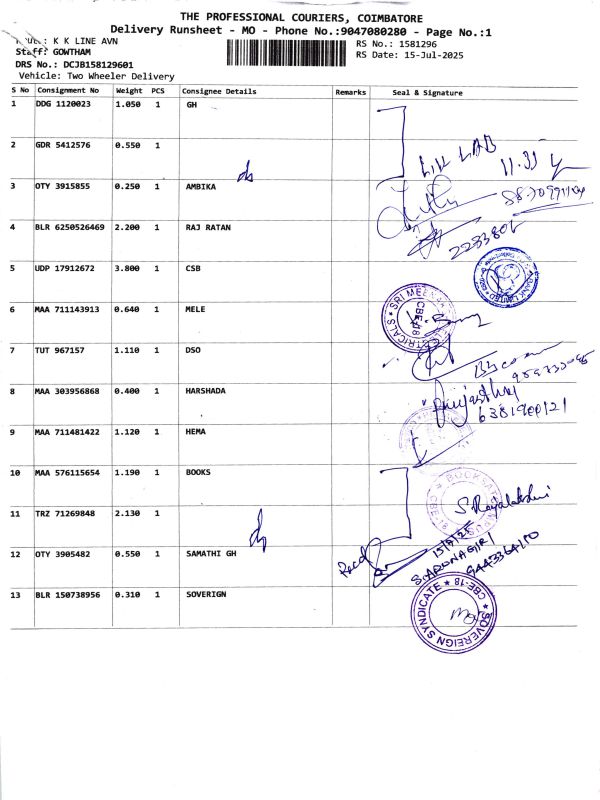 THE PROFESSIONAL COURIERS, COIMBATORE
Delivery Runsheet - MO - Phone No.:9047080280 - Page No.:1
K K LINE AVN
RS No.: 1581296
Staff: GOWTHAM
RS Date: 15-Jul-2025
DRS No.: DCJB158129601
Vehicle: Two Wheeler Delivery
S No Consignment No Weight PCS Consignee Details Remarks Seal & Signature
1 DDG 1120023 1.050 1 GH
2 GDR 5412576 0.550 1
LAB
11.35
3 OTY 3915855 0.250 1 AMBIKA
4 BLR 6250526469 2.200 1 RAJ RATAN
2233806
5 UDP 17912672 3.800 1 CSB
6 MAA 711143913 0.640 1 MELE
SRI MEENA
CBE-18
7 TUT 967157 1.110 1 DSO
8 MAA 303956868 0.400 1 HARSHADA
6381900121
9 MAA 711481422 1.120 1 HEMA
10 MAA 576115654 1.190 1 BOOKS
S. Rajalakshmi
11 TRZ 71269848 2.130 1
12 OTY 3905482 0.550 1 SAMATHI GH
Recd
S. ARUNAGIRI
13 BLR 150738956 0.310 1 SOVERIGN
SOVEREIGN SYNDICATE CBE-18